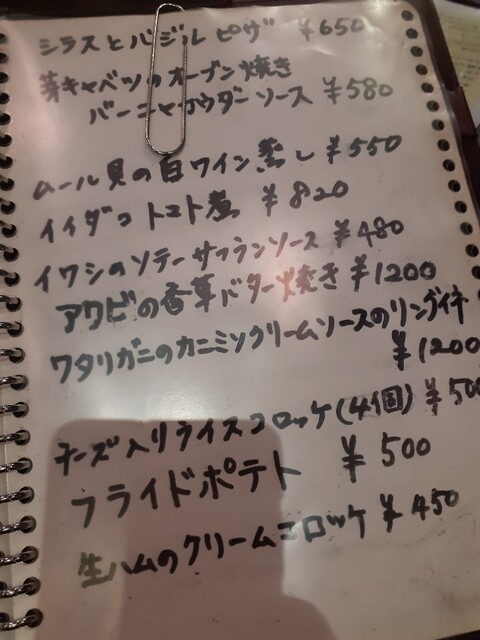 シラスとバジルピザ ¥650
芽キャベツのオーブン焼き
バーニャカウダーソース ¥580
ムール貝の白ワイン蒸し ¥550
イイダコトマト煮 ¥820
イワシのソテーサフランソース ¥480
アワビの香草バター焼き ¥1200
ワタリガニのカニミソクリームソースのリングイネ
¥1200
チーズ入りライスコロッケ(4個) ¥500
フライドポテト ¥500
生ハムのクリームコロッケ ¥450